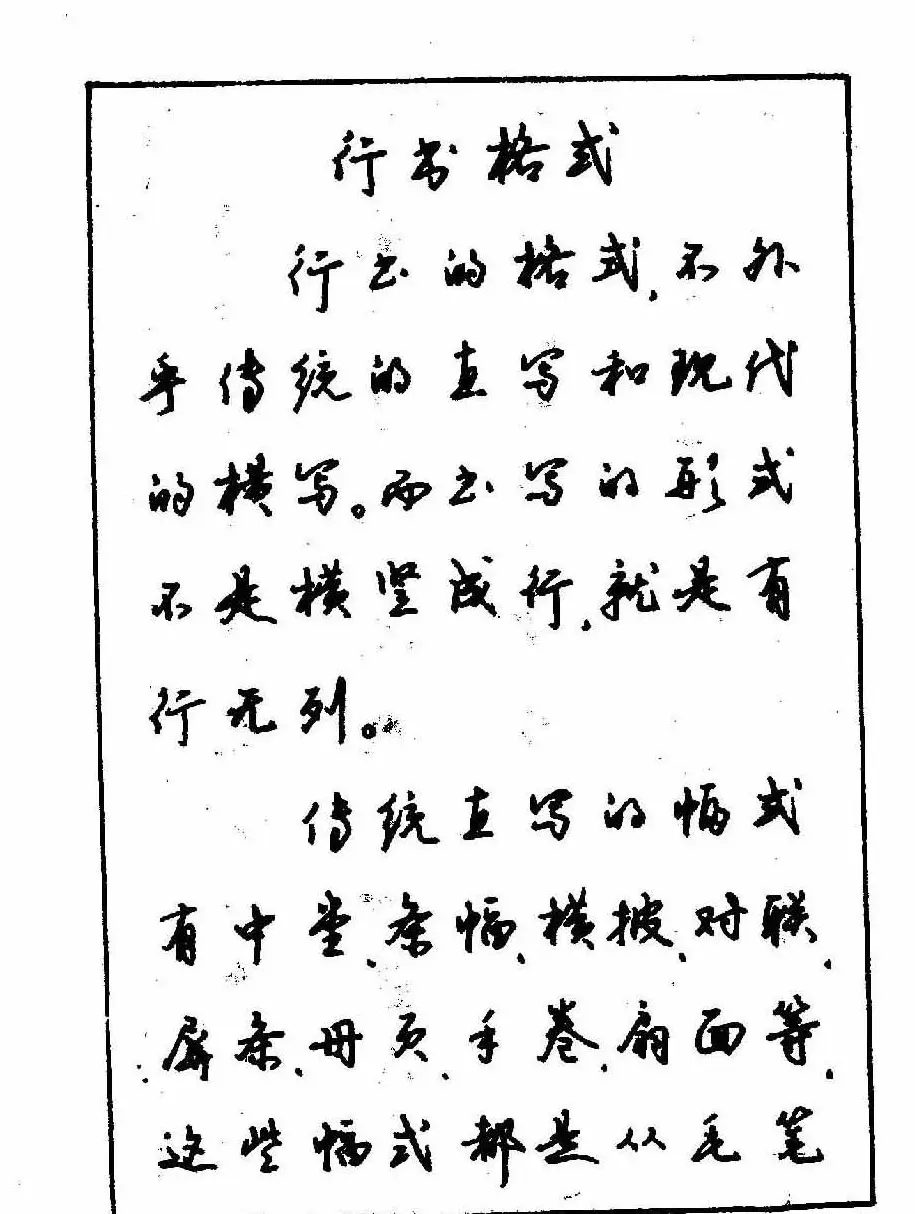 行书格式
行书的格式,不外
乎传统的直写和现代
的横写。而书写的形式
不是横竖成行,就是有
行无列。
传统直写的幅式
有中堂、条幅、横披、对联、
屏条、册页、手卷、扇面等,
这些幅式都是从毛笔